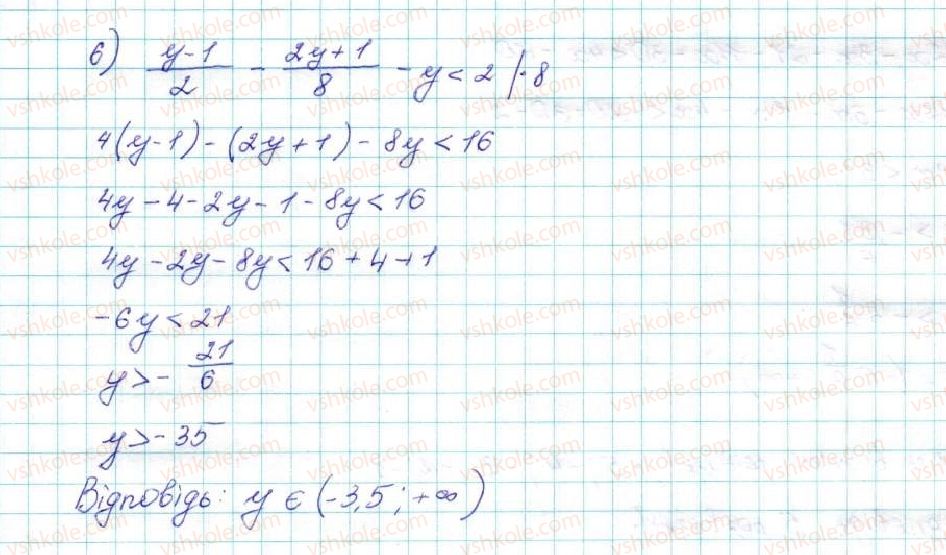 6) (y-1)/2 - (2y+1)/8 - y < 2 |·8
4(y-1)-(2y+1)-8y<16
4y-4-2y-1-8y<16
4y-2y-8y<16+4+1
-6y<21
y>-21/6
y>-35
Відповідь: y є (-3,5; +∞)
vshkole.com